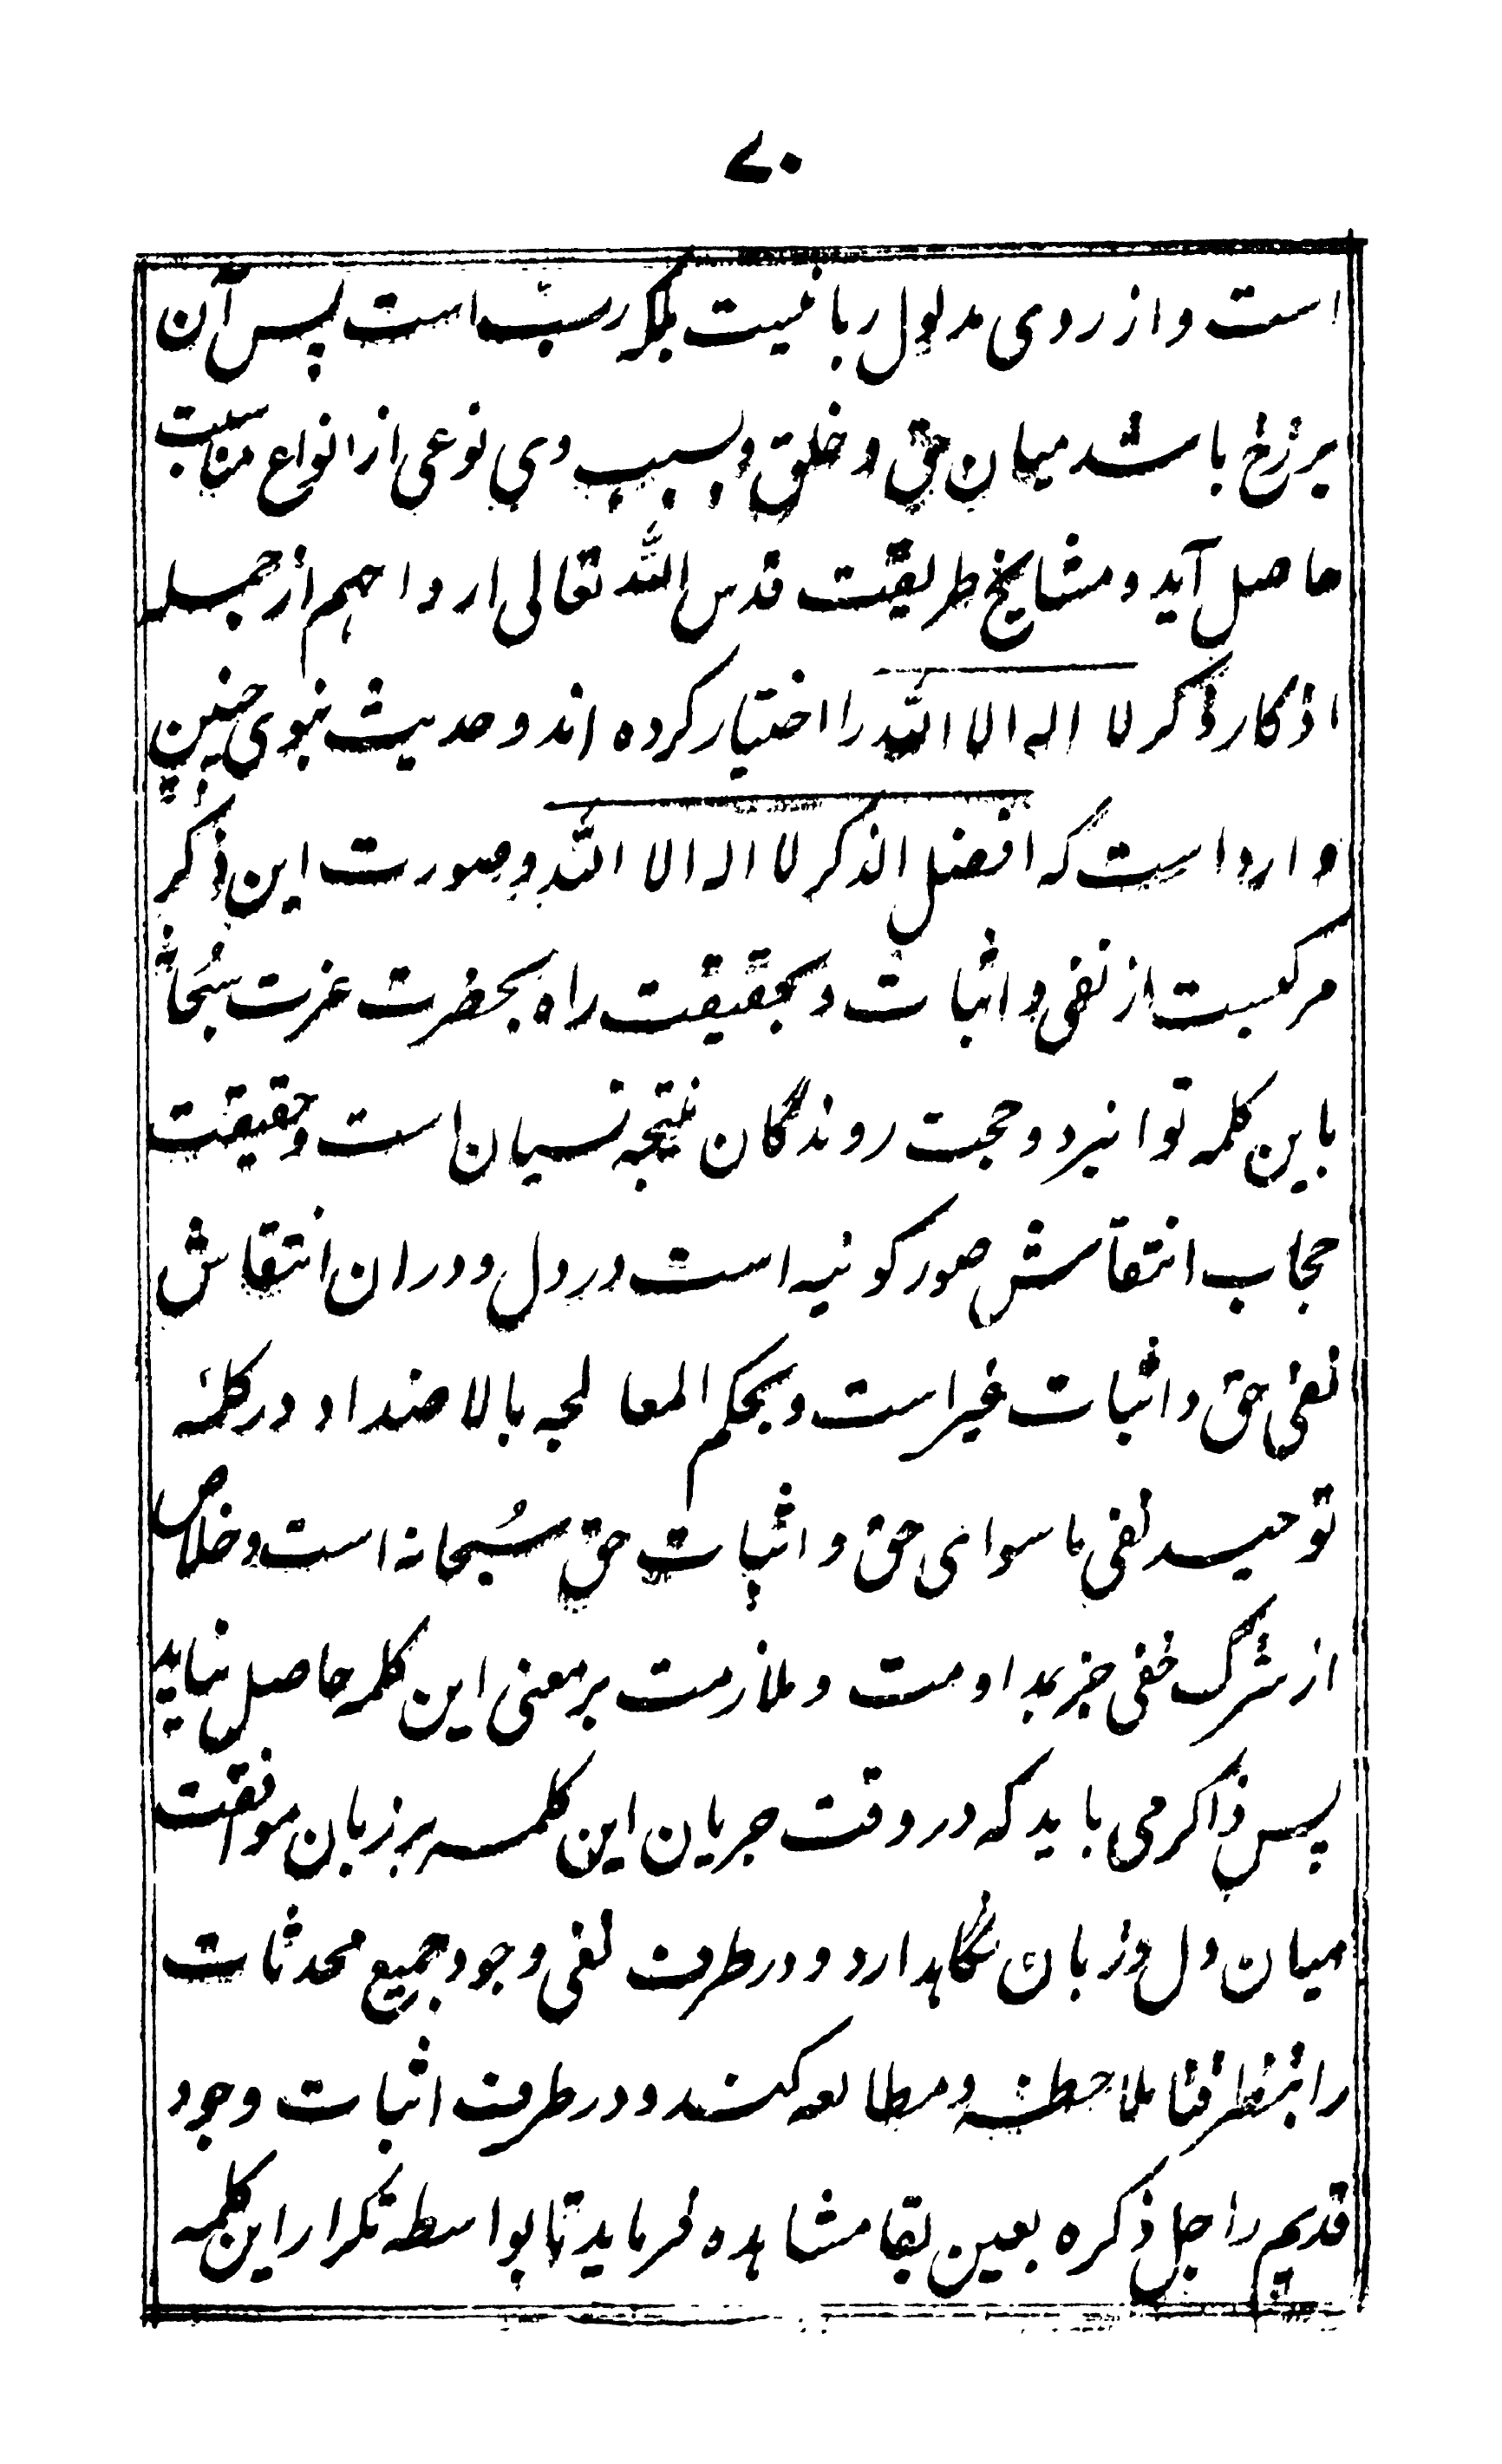 ۷۰
است و از روی مدلول ربانیست بلکه رب است پس آن
برزخ باشد میان حق و خلق و بسبب وی نوعی از انواع مناسبت
حاصل آید و مشایخ طریقت قدس الله تعالی ارواحهم از جمله
اذکار ذکر لا اله الا الله را اختیار کرده اند و حدیث نبوی چنین
وارد است که افضل الذکر لا اله الا الله و صورت این ذکر
مرکبست از نفی و اثبات و بحقیقت راه بحضرت عزت سبحانه
باین کلمه توانبرد و حجب روندگان نتیجه نسیان است و حقیقت
حجاب انتقاش صور کونیه است در دل و دران انتقاش
نفی حق و اثبات غیر است و بحکم المعالجه بالاضداد در کلمۀ
توحید نفی ماسوای حق و اثبات حق سُبحانه است و خلاص
از شرک خفی جز بمداومت و ملازمت بر معنی این کلمه حاصل نیاید
پس ذاکر می باید که در وقت جریان این کلمه بر زبان موافقت
میان دل و زبان نگاهدارد و در طرف نفی وجود جمیع محدثات
را بنظر فنا ملاحظه و مطالعه کند و در طرف اثبات وجود
قدیم را جل ذکره بعین بقا مشاهده فرماید تا بواسطه تکرار این کلمه